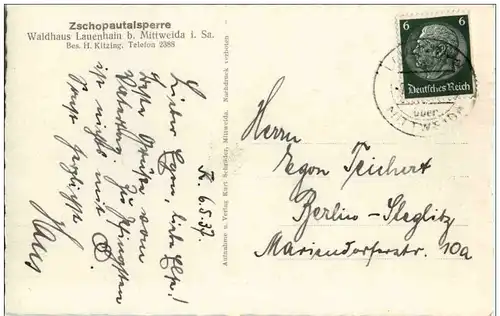 Zschopautalsperre
Waldhaus Lauenhain b. Mittweida i. Sa.
Bes. H. Kitzing. Telefon 2388
K. 6.5.37.
Lieber Egon, liebe Else!
Beste Grüße vom
Vatertag. Zu Pfingsten
ist nichts mit B.
Sonst herzlichst
Hans
Aufnahme u. Verlag Kurt Schröder, Mittweida. Nachdruck verboten
6 6
Deutsches Reich
über
MITTWEIDA
Herrn
Egon Teichert
Berlin-Steglitz
Mariendorferstr. 10a